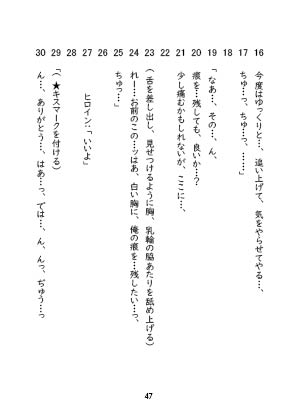 16 今度はゆっくりと…、追い上げて、気をやらせてやる…、
17 ちゅ…っ、ちゅ…っ、……」
18
19 「なあ…、その…、ん、
20 痕を…残しても、良いか…？
21 少し痛むかもしれないが、ここに…、
22
23 （舌を差し出し、見せつけるように胸、乳輪の脇あたりを舐め上げる）
24 れ！…お前のこの…ッはあ、白い胸に、俺の痕を…残したい…っ、
25 ちゅっ…」
26
27 ヒロイン：「いいよ」
28
29 「（★キスマークを付ける）
30 ん…、ありがとう…、はあ…っ、では…、ん、んっ、ぢゅう…っ
47